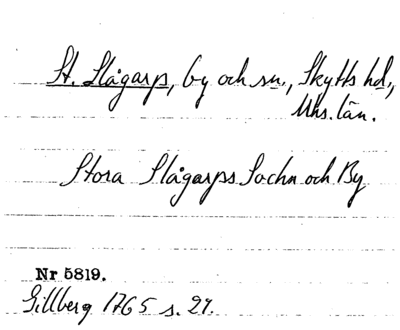 St. Slågarps, by och sn., Skytts hd.,
Mhs. län.
Stora Slågarps Sochn och By
Nr 5819.
Gillberg 1765 s. 27.